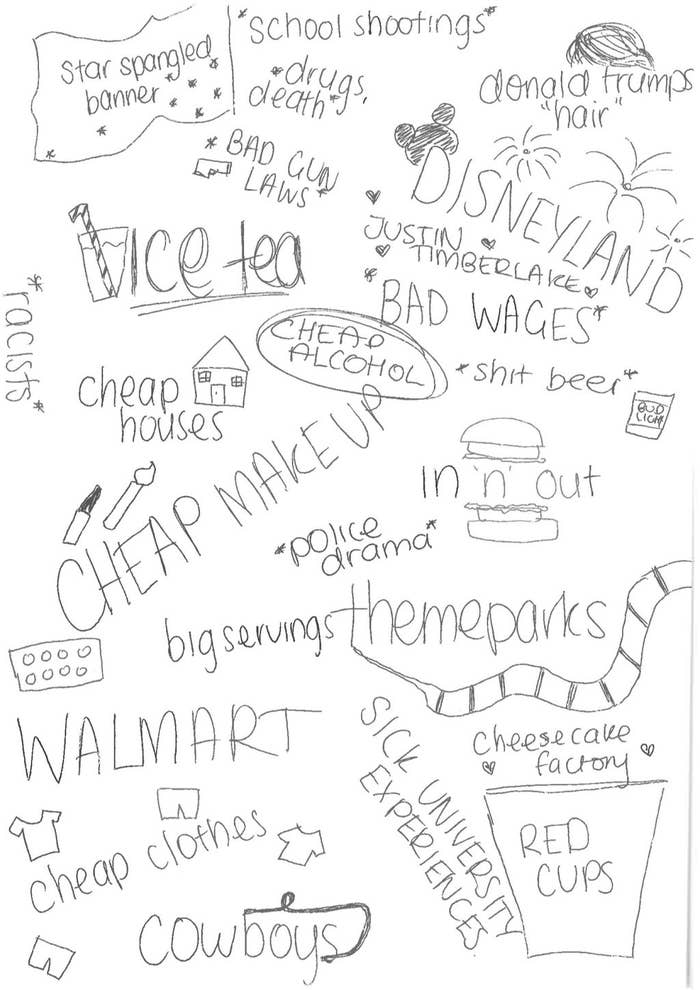 Star spangled
banner
*school shootings*
*drugs,
death*
donald trumps
"hair"
* BAD GUN
LAWS*
DISNEYLAND
ice tea
JUSTIN
TIMBERLAKE
*BAD WAGES*
*racists*
CHEAP
ALCOHOL
*shit beer*
BUD
LIGHT
cheap
houses
CHEAP MAKE UP
in 'n' out
*police
drama*
big servings
themeparks
WALMART
SICK UNIVERSITY
EXPERIENCES
cheesecake
factory
RED
CUPS
cheap clothes
cowboys